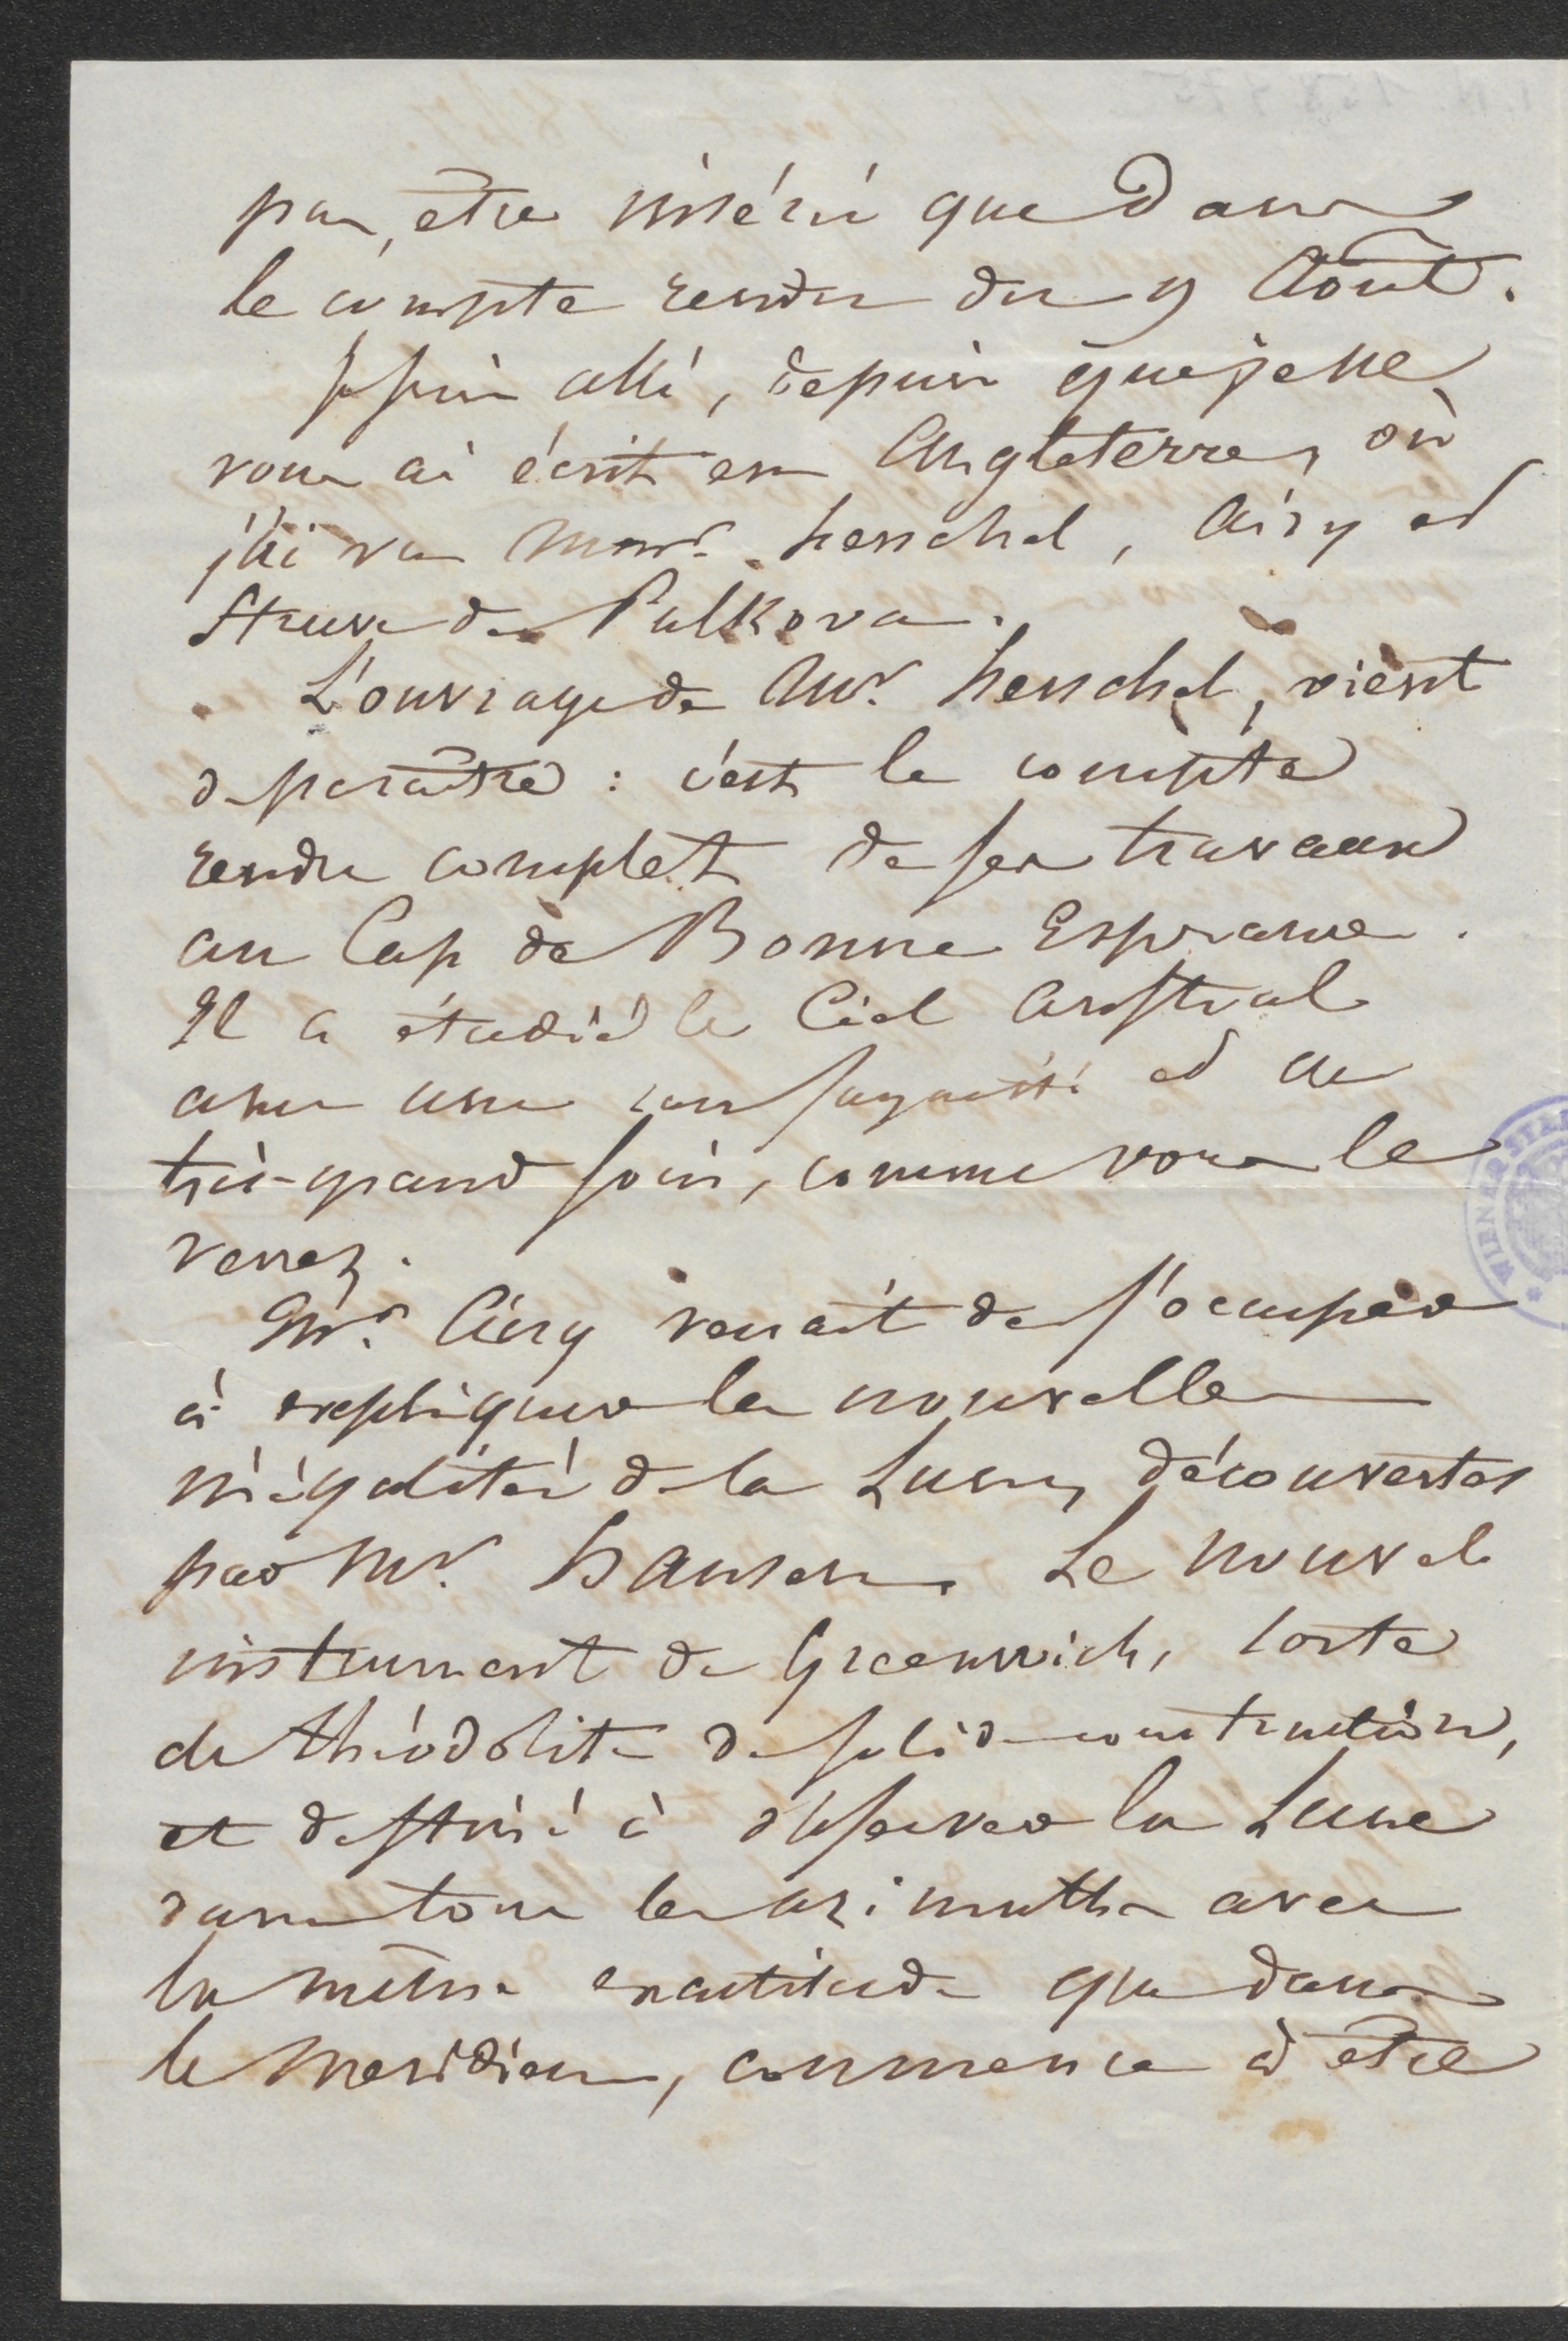 pas être inséré que dans
le compte rendu du 9 Août.
Je suis allé, depuis que je ne
vous ai écrit en Angleterre, où
j'ai vu Mrs. herschel, Airy et
Struve de Pulkova.
L'ouvrage de Mr. herschel, vient
de paraître : c'est le compte
rendu complet de ses travaux
au Cap de Bonne Espérance.
Il a étudié le Ciel Austral
avec une rare sagacité et un
très-grand soin, comme vous le
verrez.
Mr. Airy venait de s'occuper
à expliquer les nouvelles
inégalités de la Lune, découvertes
par Mr. hansen. Le nouvel
instrument de Greenwich, sorte
de théodolite de solide construction,
et destiné à observer la Lune
dans tous les azimuths avec
la même exactitude que dans
le méridien, commence à être
WIENER